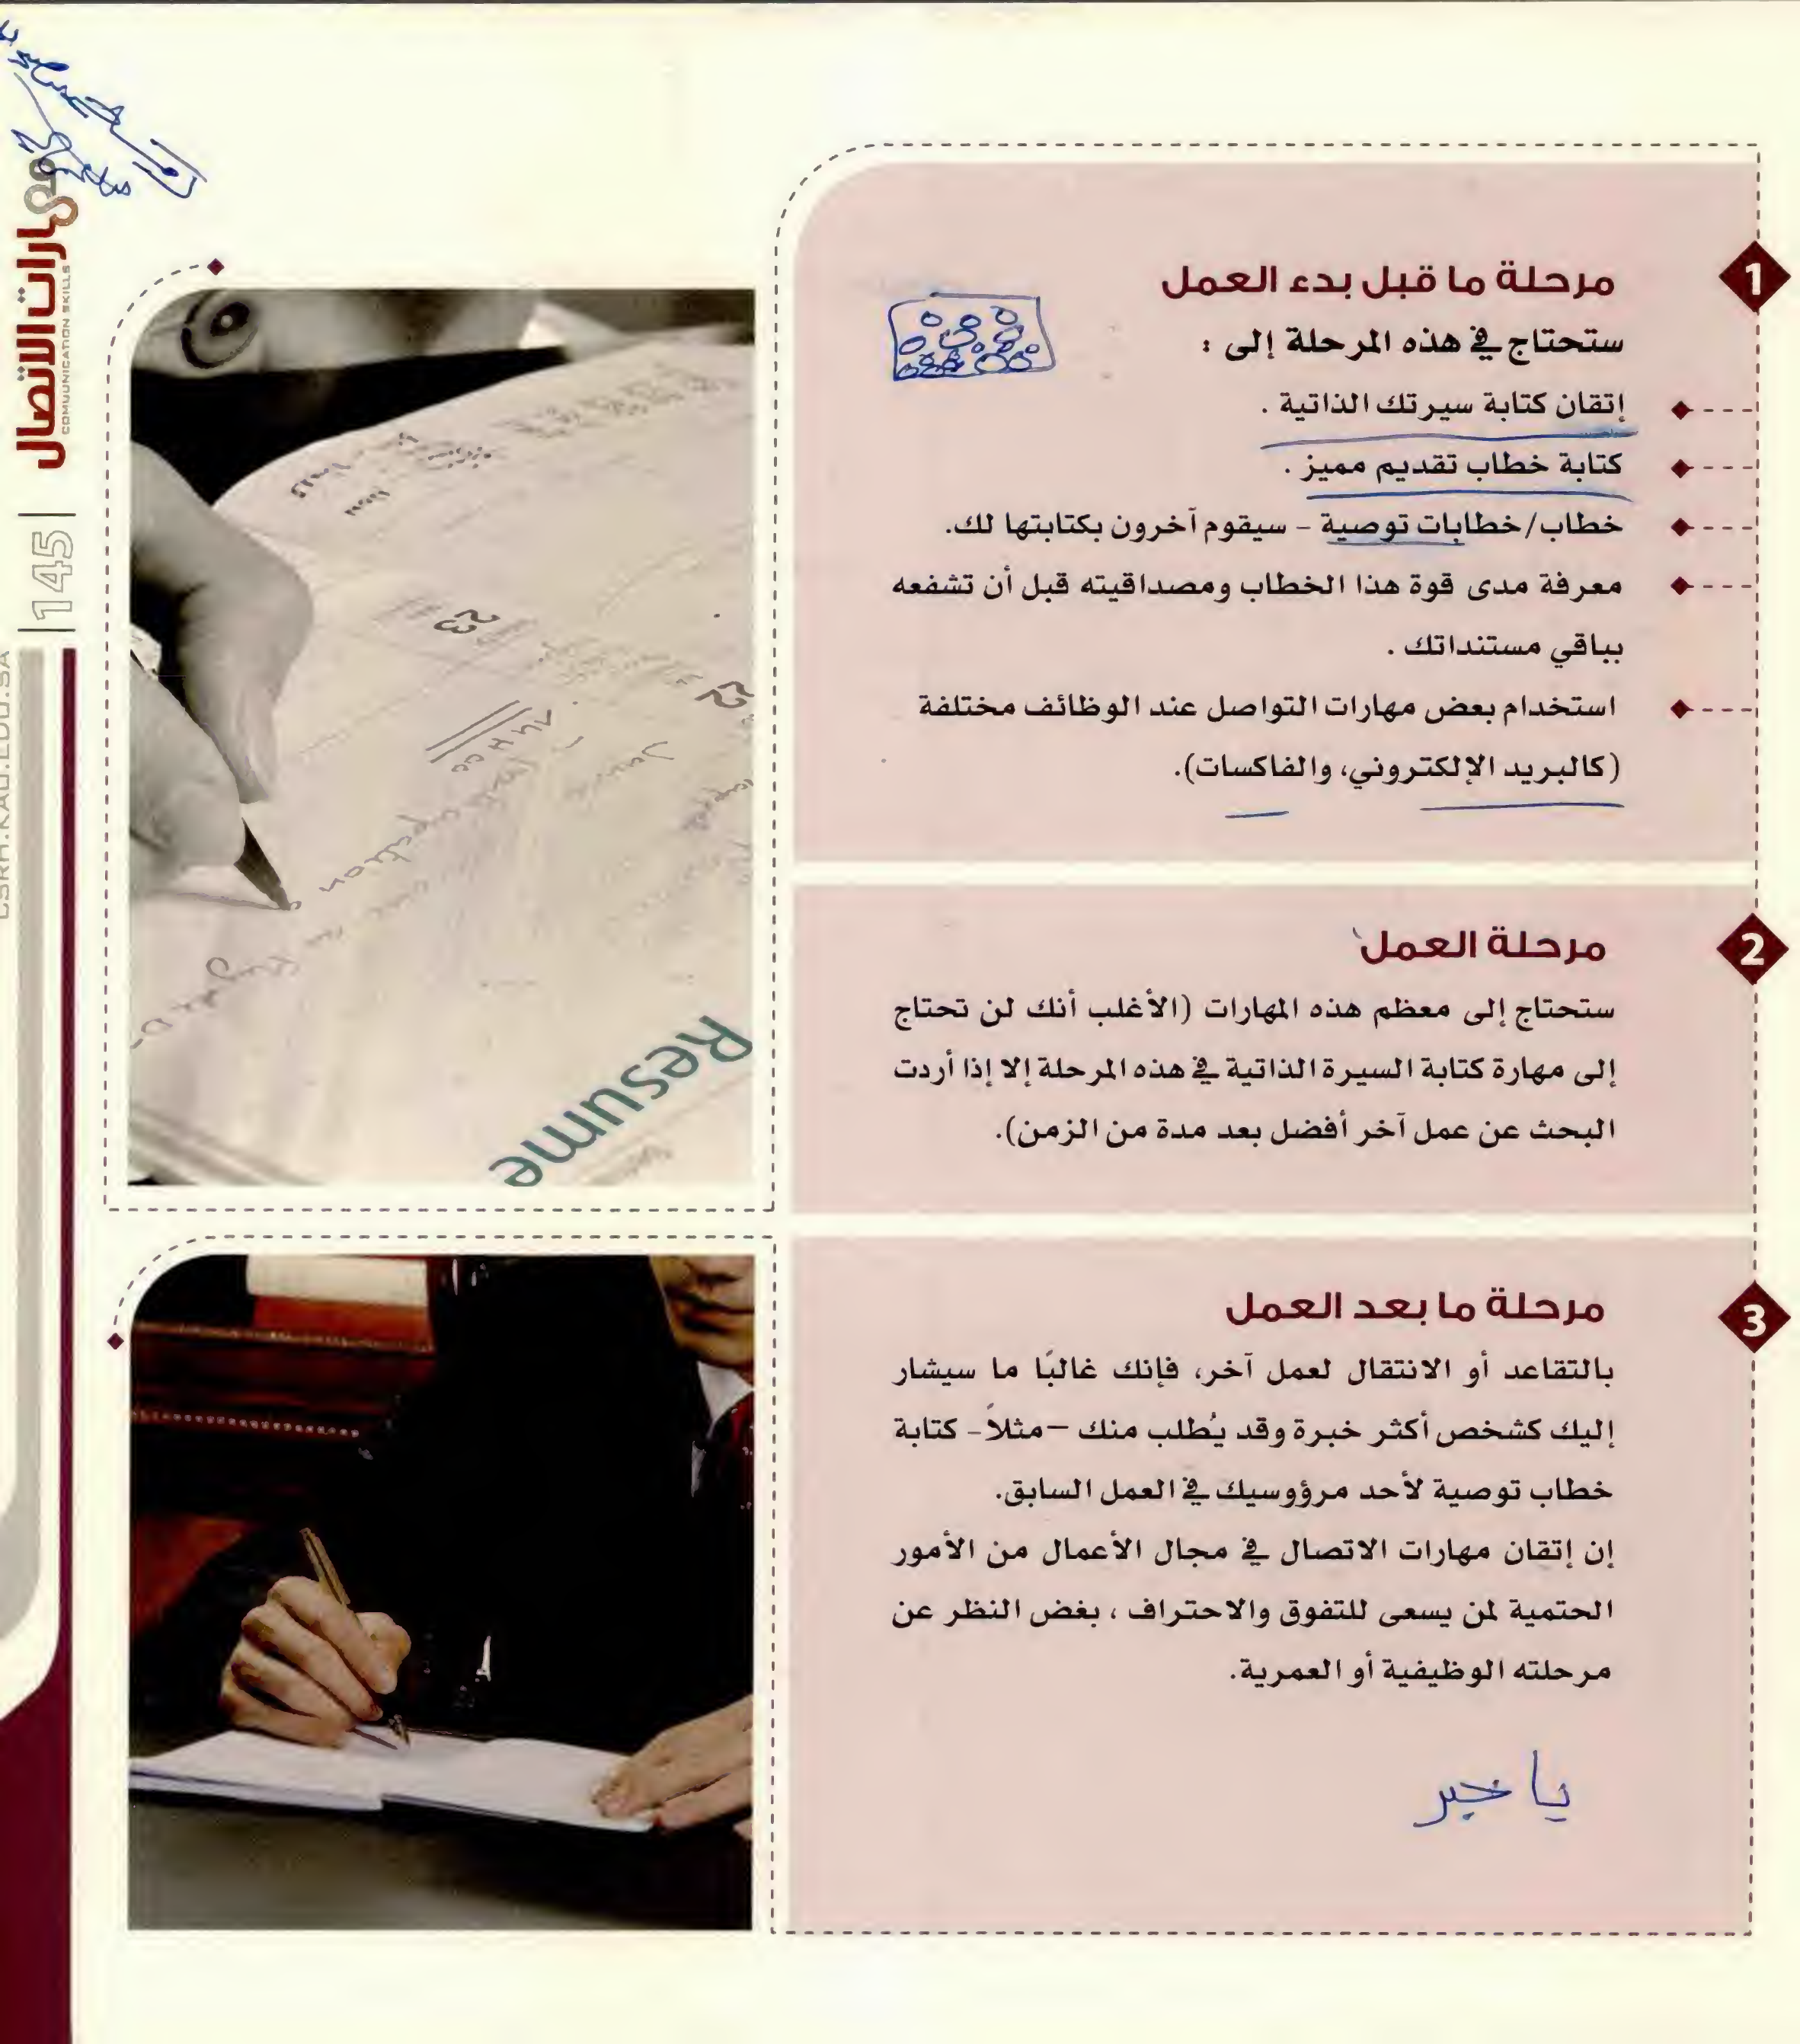 1
مرحلة ما قبل بدء العمل
ستحتاج في هذه المرحلة إلى :
إتقان كتابة سيرتك الذاتية .
كتابة خطاب تقديم مميز .
خطاب/خطابات توصية - سيقوم آخرون بكتابتها لك.
معرفة مدى قوة هذا الخطاب ومصداقيته قبل أن تشفعه
بباقي مستنداتك .
استخدام بعض مهارات التواصل عند الوظائف مختلفة
(كالبريد الإلكتروني، والفاكسات).
2
مرحلة العمل
ستحتاج إلى معظم هذه المهارات (الأغلب أنك لن تحتاج
إلى مهارة كتابة السيرة الذاتية في هذه المرحلة إلا إذا أردت
البحث عن عمل آخر أفضل بعد مدة من الزمن).
3
مرحلة ما بعد العمل
بالتقاعد أو الانتقال لعمل آخر، فإنك غالبًا ما سيشار
إليك كشخص أكثر خبرة وقد يُطلب منك –مثلاً- كتابة
خطاب توصية لأحد مرؤوسيك في العمل السابق.
إن إتقان مهارات الاتصال في مجال الأعمال من الأمور
الحتمية لمن يسعى للتفوق والاحتراف ، بغض النظر عن
مرحلته الوظيفية أو العمرية.
يا خبر
Resume
23
22
مهارات الاتصال
COMUUNICATION SKILLS
145